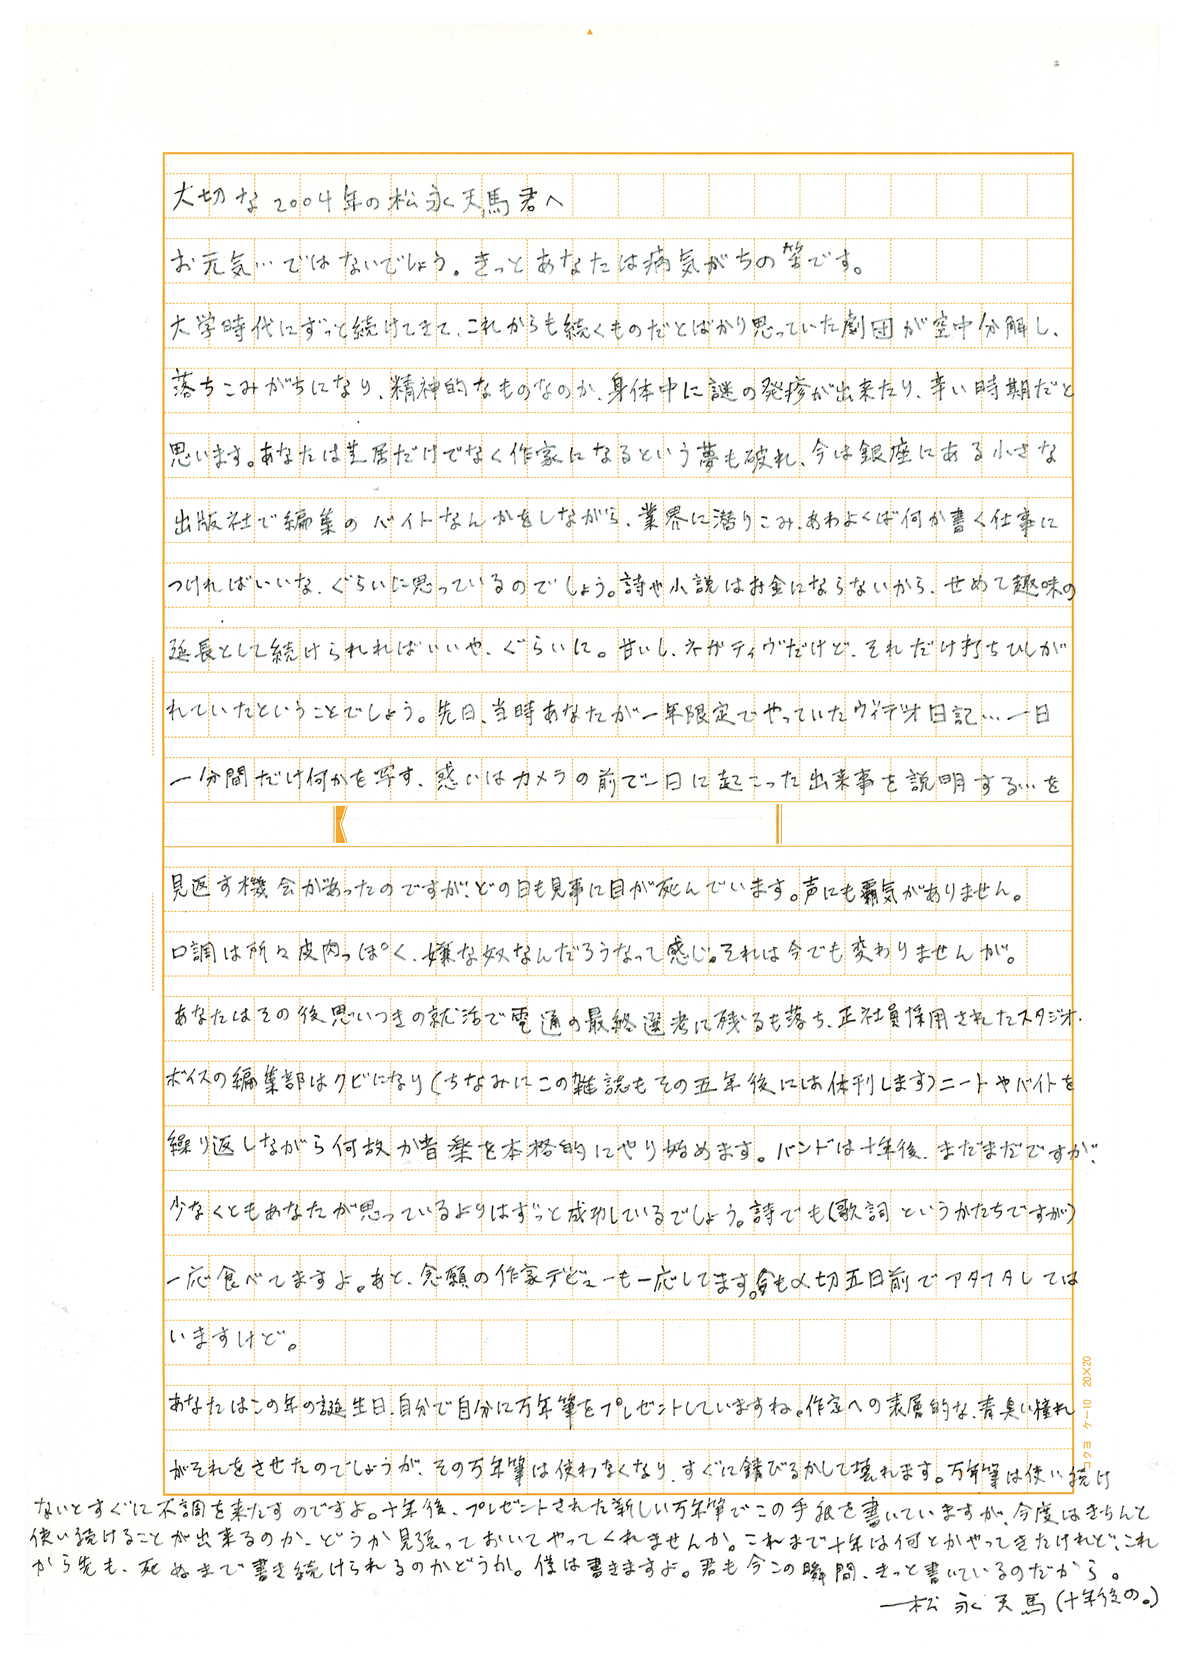 大切な2004年の松永天馬君へ
お元気…ではないでしょう。きっとあなたは病気がちの筈です。
大学時代にずっと続けてきて、これからも続くものだとばかり思っていた劇団が空中分解し、
落ちこみがちになり、精神的なものなのか、身体中に謎の発疹が出来たり、辛い時期だと
思います。あなたは芝居だけでなく作家になるという夢も破れ、今は銀座にある小さな
出版社で編集のバイトなんかをしながら、業界に潜りこみ、あわよくば何か書く仕事に
つければいいな、ぐらいに思っているのでしょう。詩や小説はお金にならないから、せめて趣味の
延長として続けられればいいや、ぐらいに。甘いし、ネガティヴだけど、それだけ打ちひしが
れていたということでしょう。先日、当時あなたが一年限定でやっていたヴィデオ日記…一日
一分間だけ何かを写す、惑いはカメラの前で一日に起こった出来事を説明する…を
見返す機会があったのですが、どの日も見事に目が死んでいます。声にも覇気がありません。
口調は所々皮肉っぽく、嫌な奴なんだろうなって感じ。それは今でも変わりませんが。
あなたはその後思いつきの就活で電通の最終選考に残るも落ち、正社員採用されたスタジオ・
ボイスの編集部はクビになり(ちなみにこの雑誌もその五年後には休刊します)ニートやバイトを
繰り返しながら何故か音楽を本格的にやり始めます。バンドは十年後、まだまだですが、
少なくともあなたが思っているよりはずっと成功しているでしょう。詩でも(歌詞というかたちですが)
一応食べてますよ。あと、念願の作家デビューも一応してます。今も〆切五日前でアタフタしては
いますけど。
あなたはこの年の誕生日、自分で自分に万年筆をプレゼントしていますね。作家への表層的な、青臭い憧れ
がそれをさせたのでしょうが、その万年筆は使わなくなり、すぐに錆びるかして壊れます。万年筆は使い続け
ないとすぐに不調を来たすのですよ。十年後、プレゼントされた新しい万年筆でこの手紙を書いていますが、今度はきちんと
使い続けることが出来るのか、どうか見張っておいてやってくれませんか。これまで十年は何とかやってきたけれど、これ
から先も、死ぬまで書き続けられるのかどうか。僕は書きますよ。君も今この瞬間、きっと書いているのだから。
―松永天馬(十年後の。)
コクヨ ケ-10 20×20